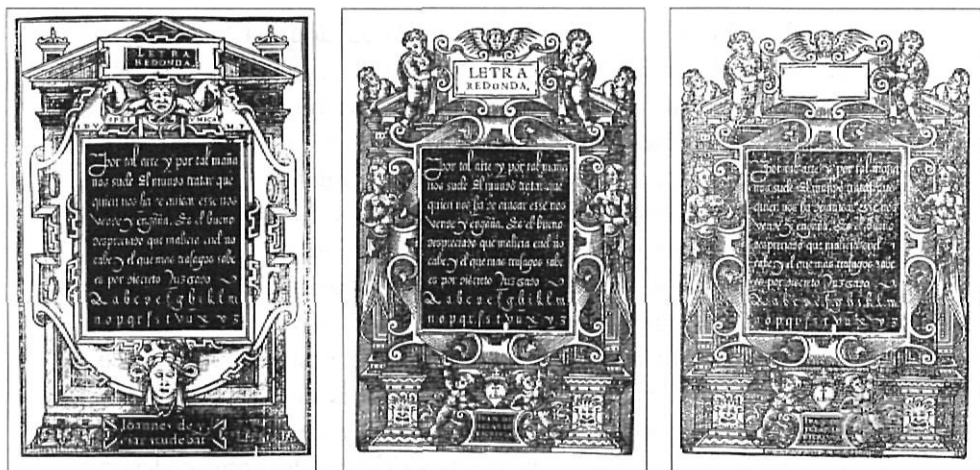 LETRA
REDONDA.
Por tal arte y por tal maña
nos suele El mundo tratar que
quien nos ha de avisar esse nos
vende y engaña. Es el bueno
despreciado que malicia enel no
cabe y el que mas trafagos sabe
es por discreto Juzgado
a b c d e f g h i k l m
n o p q r s s t v u x y z
LETRA
REDONDA,
Por tal arte y por tal maña
nos suele El mundo tratar que
quien nos ha de avisar esse nos
vende y engaña. Es el bueno
despreciado que malicia enel no
cabe y el que mas trafagos sabe
es por discreto Juzgado
a b c d e f g h i k l m
n o p q r s s t v u x y z
nos suele El mundo tratar que
quien nos ha de avisar esse nos
vende y engaña. Es el bueno
despreciado que malicia enel
cabe y el que mas trafagos sabe
es por discreto Juzgado
a b c d e f g h i k l m
n o p q r s s t v u x y z